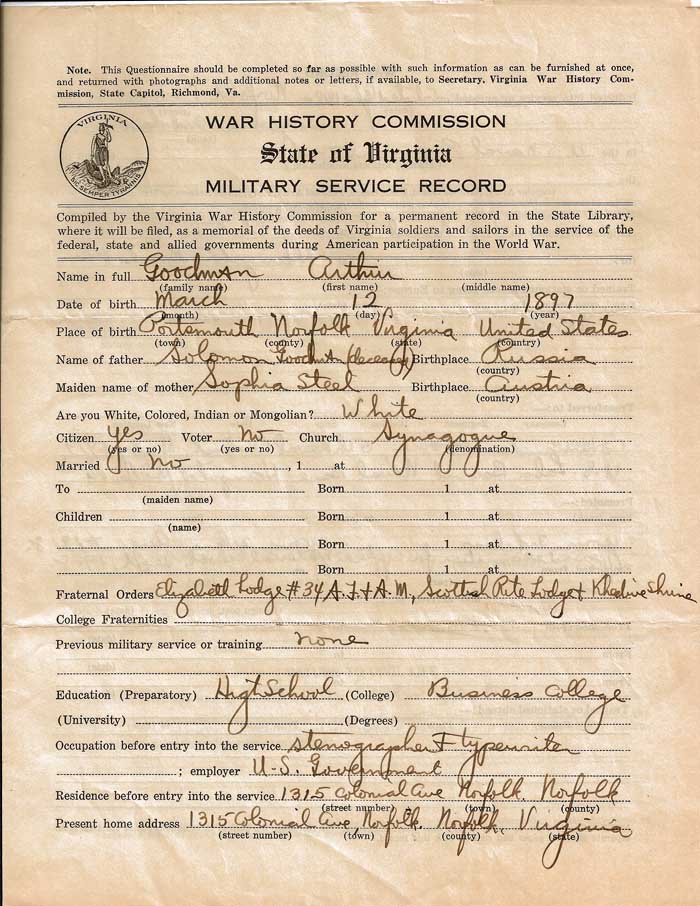 Note. This Questionnaire should be completed so far as possible with such information as can be furnished at once,
and returned with photographs and additional notes or letters, if available, to Secretary, Virginia War History Com-
mission, State Capitol, Richmond, Va.
VIRGINIA
SIC SEMPER TYRANNIS
WAR HISTORY COMMISSION
State of Virginia
MILITARY SERVICE RECORD
Compiled by the Virginia War History Commission for a permanent record in the State Library,
where it will be filed, as a memorial of the deeds of Virginia soldiers and sailors in the service of the
federal, state and allied governments during American participation in the World War.
Name in full Goodman Arthur
(family name) (first name) (middle name)
Date of birth March 12 1897
(month) (day) (year)
Place of birth Portsmouth Norfolk Virginia United States
(town) (county) (state) (country)
Name of father Solomon Goodman (deceased) Birthplace Russia
(country)
Maiden name of mother Sophia Steel Birthplace Austria
(country)
Are you White, Colored, Indian or Mongolian? White
Citizen Yes Voter No Church Synagogue
(yes or no) (yes or no) (denomination)
Married No , 1 at
To Born 1 at
(maiden name)
Children Born 1 at
(name)
Born 1 at
Born 1 at
Fraternal Orders Elizabeth Lodge #34 A.F.& A.M., Scottish Rite Lodge & Khedive Shrine
College Fraternities
Previous military service or training none
Education (Preparatory) High School (College) Business College
(University) (Degrees)
Occupation before entry into the service stenographer & typewriter
; employer U-S. Government
Residence before entry into the service 1315 Colonial Ave Norfolk, Norfolk
(street number) (town) (county)
Present home address 1315 Colonial Ave, Norfolk, Norfolk, Virginia
(street number) (town) (county) (state)